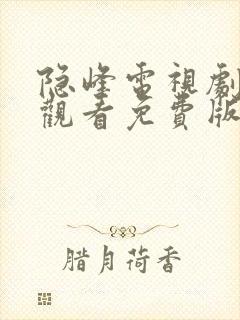 隐峰電視劇
觀看免費版
腊月荷香